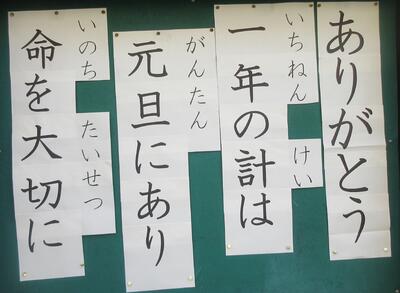 ありがとう
いちねん けい
一年の計は
がんたん
元旦にあり
いのち たいせつ
命を大切に